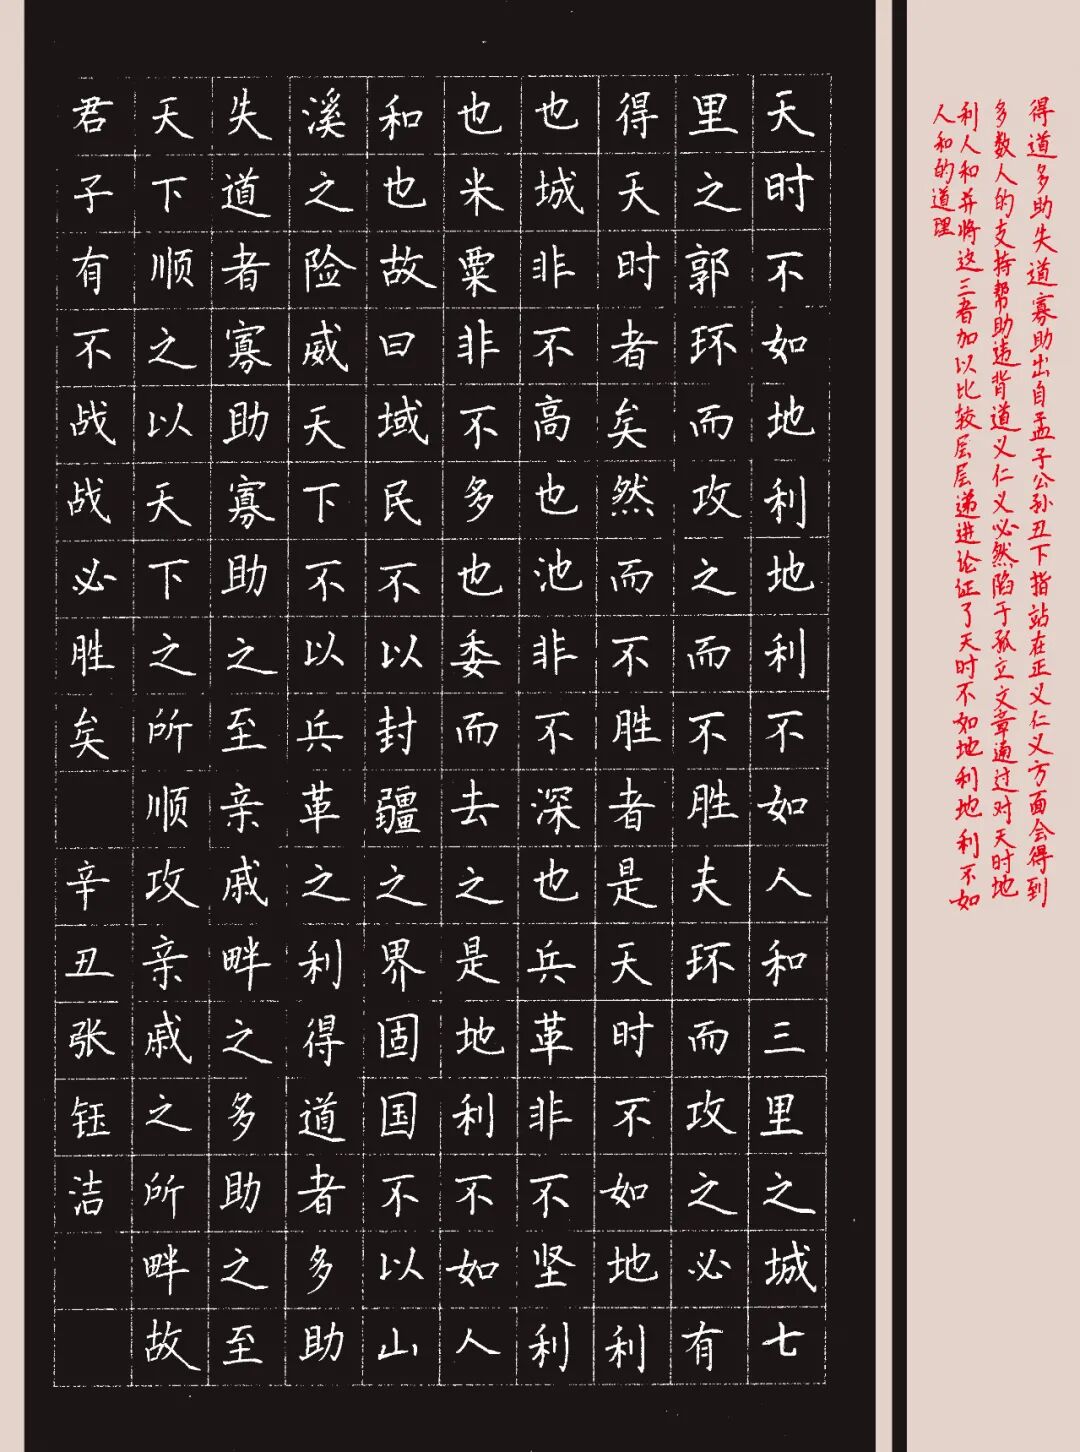 得道多助失道寡助出自孟子公孙丑下指站在正义仁义方面会得到
多数人的支持帮助违背道义仁义必然陷于孤立文章通过对天时地
利人和并将这三者加以比较层层递进论证了天时不如地利地利不如
人和的道理
天时不如地利地利不如人和三里之城七
里之郭环而攻之而不胜夫环而攻之必有
得天时者矣然而不胜者是天时不如地利
也城非不高也池非不深也兵革非不坚利
也米粟非不多也委而去之是地利不如人
和也故曰域民不以封疆之界固国不以山
溪之险威天下不以兵革之利得道者多助
失道者寡助寡助之至亲戚畔之多助之至
天下顺之以天下之所顺攻亲戚之所畔故
君子有不战战必胜矣 辛丑张钰洁